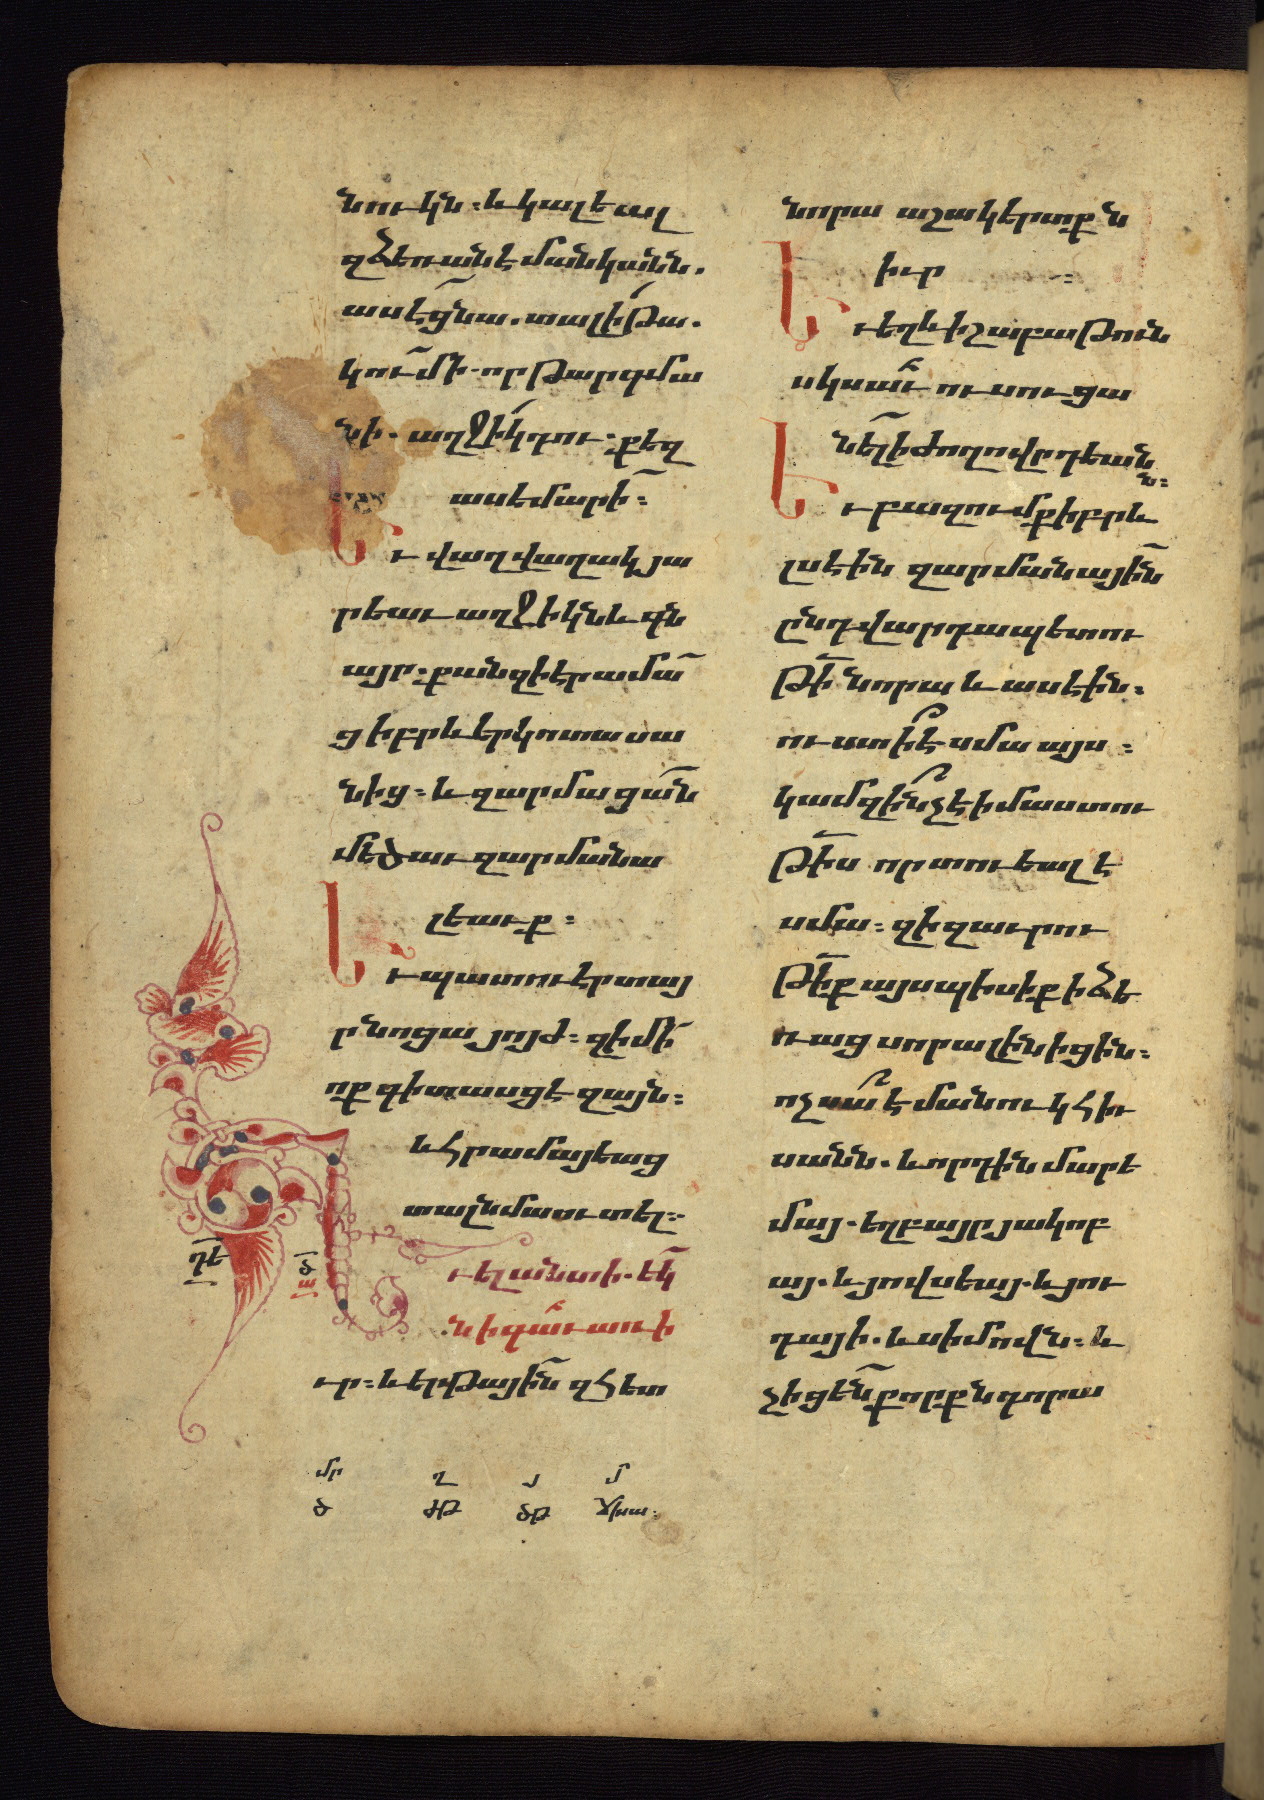 նուկն։ և կալեալ
զձեռանէ մանկանն.
ասէ ցնա. տալիթա.
կումի. որ թարգմա
նի. աղջիկ դու։ քեզ
ասեմ արի։
Եւ վաղվաղակի յա
րեաւ աղջիկն և գն
այր։ քանզի էր ամա
ց իբրև երկոտասա
նից։ և զարմացան
մեծաւ զարմանա
լեաւք։
Եւ պատուէր տայ
ր նոցա յոյժ։ զի մի
ոք գիտասցէ զայն։
և հրամայեաց
տալ նմա ուտել։
Եւ ել անտի. եկ
ն ի գաւառ ի
ւր։ և երթային զհետ
դէ
ծ
ա
նորա աշակերտքն
իւր։
Եւ եղև ի շաբաթուն
սկսաւ ուսուցա
նել ի ժողովրդեան
ն։
Եւ բազումք իբրև
լսէին զարմանային
ընդ վարդապետու
թի նորա և ասէին։
ուստի է սմա այս։
կամ զինչ է իմաստու
թիս որ տուեալ է
սմա։ զի զաւրու
թիք այսպիսիք ի ձե
ռաց սորա լինիցին։
ոչ սա է մանուկ հիւ
սանն. և որդին մարե
մայ. եղբայր յակոբ
այ. և յովսեայ. և յու
դայի. և սիմովն։ և
չիցեն քորքն դորա
մր ղ յ մ
ծ ժթ ծթ ճխա։